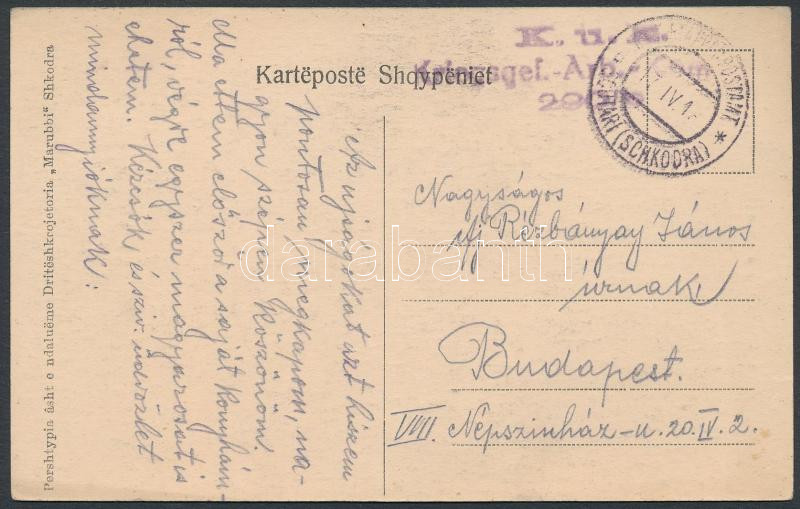 Kartëpostë Shqypëniet
K. u. K.
Kriegsgef.-Arb.-Com
SKUTARI (SCHKODRA) *
IV.1
Pershtypia âsht e ndalueme Dritëshkrojetoria „Marubbi" Shkodra
Az ujságokat azt hiszem
pontosan megkapom, na-
gyon szépen köszönöm.
Ma ettem először a saját konyhám-
ról, végre egyszer magyarosat is
ehetem. Kézcsók és szív. üdvözlet
mindannyióknak:
Nagyságos
ifj Rézbányay János
úrnak
Budapest.
VIII. Népszinház-u. 20. IV. 2.
darabanth